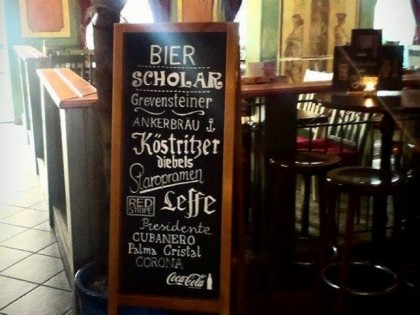 BIER
SCHOLAR
Grevensteiner
ANKERBRÄU
Köstritzer
diebels
Staropramen
RED STRIPE Leffe
Presidente
CUBANERO
Palma Cristal
CORONA
Coca-Cola